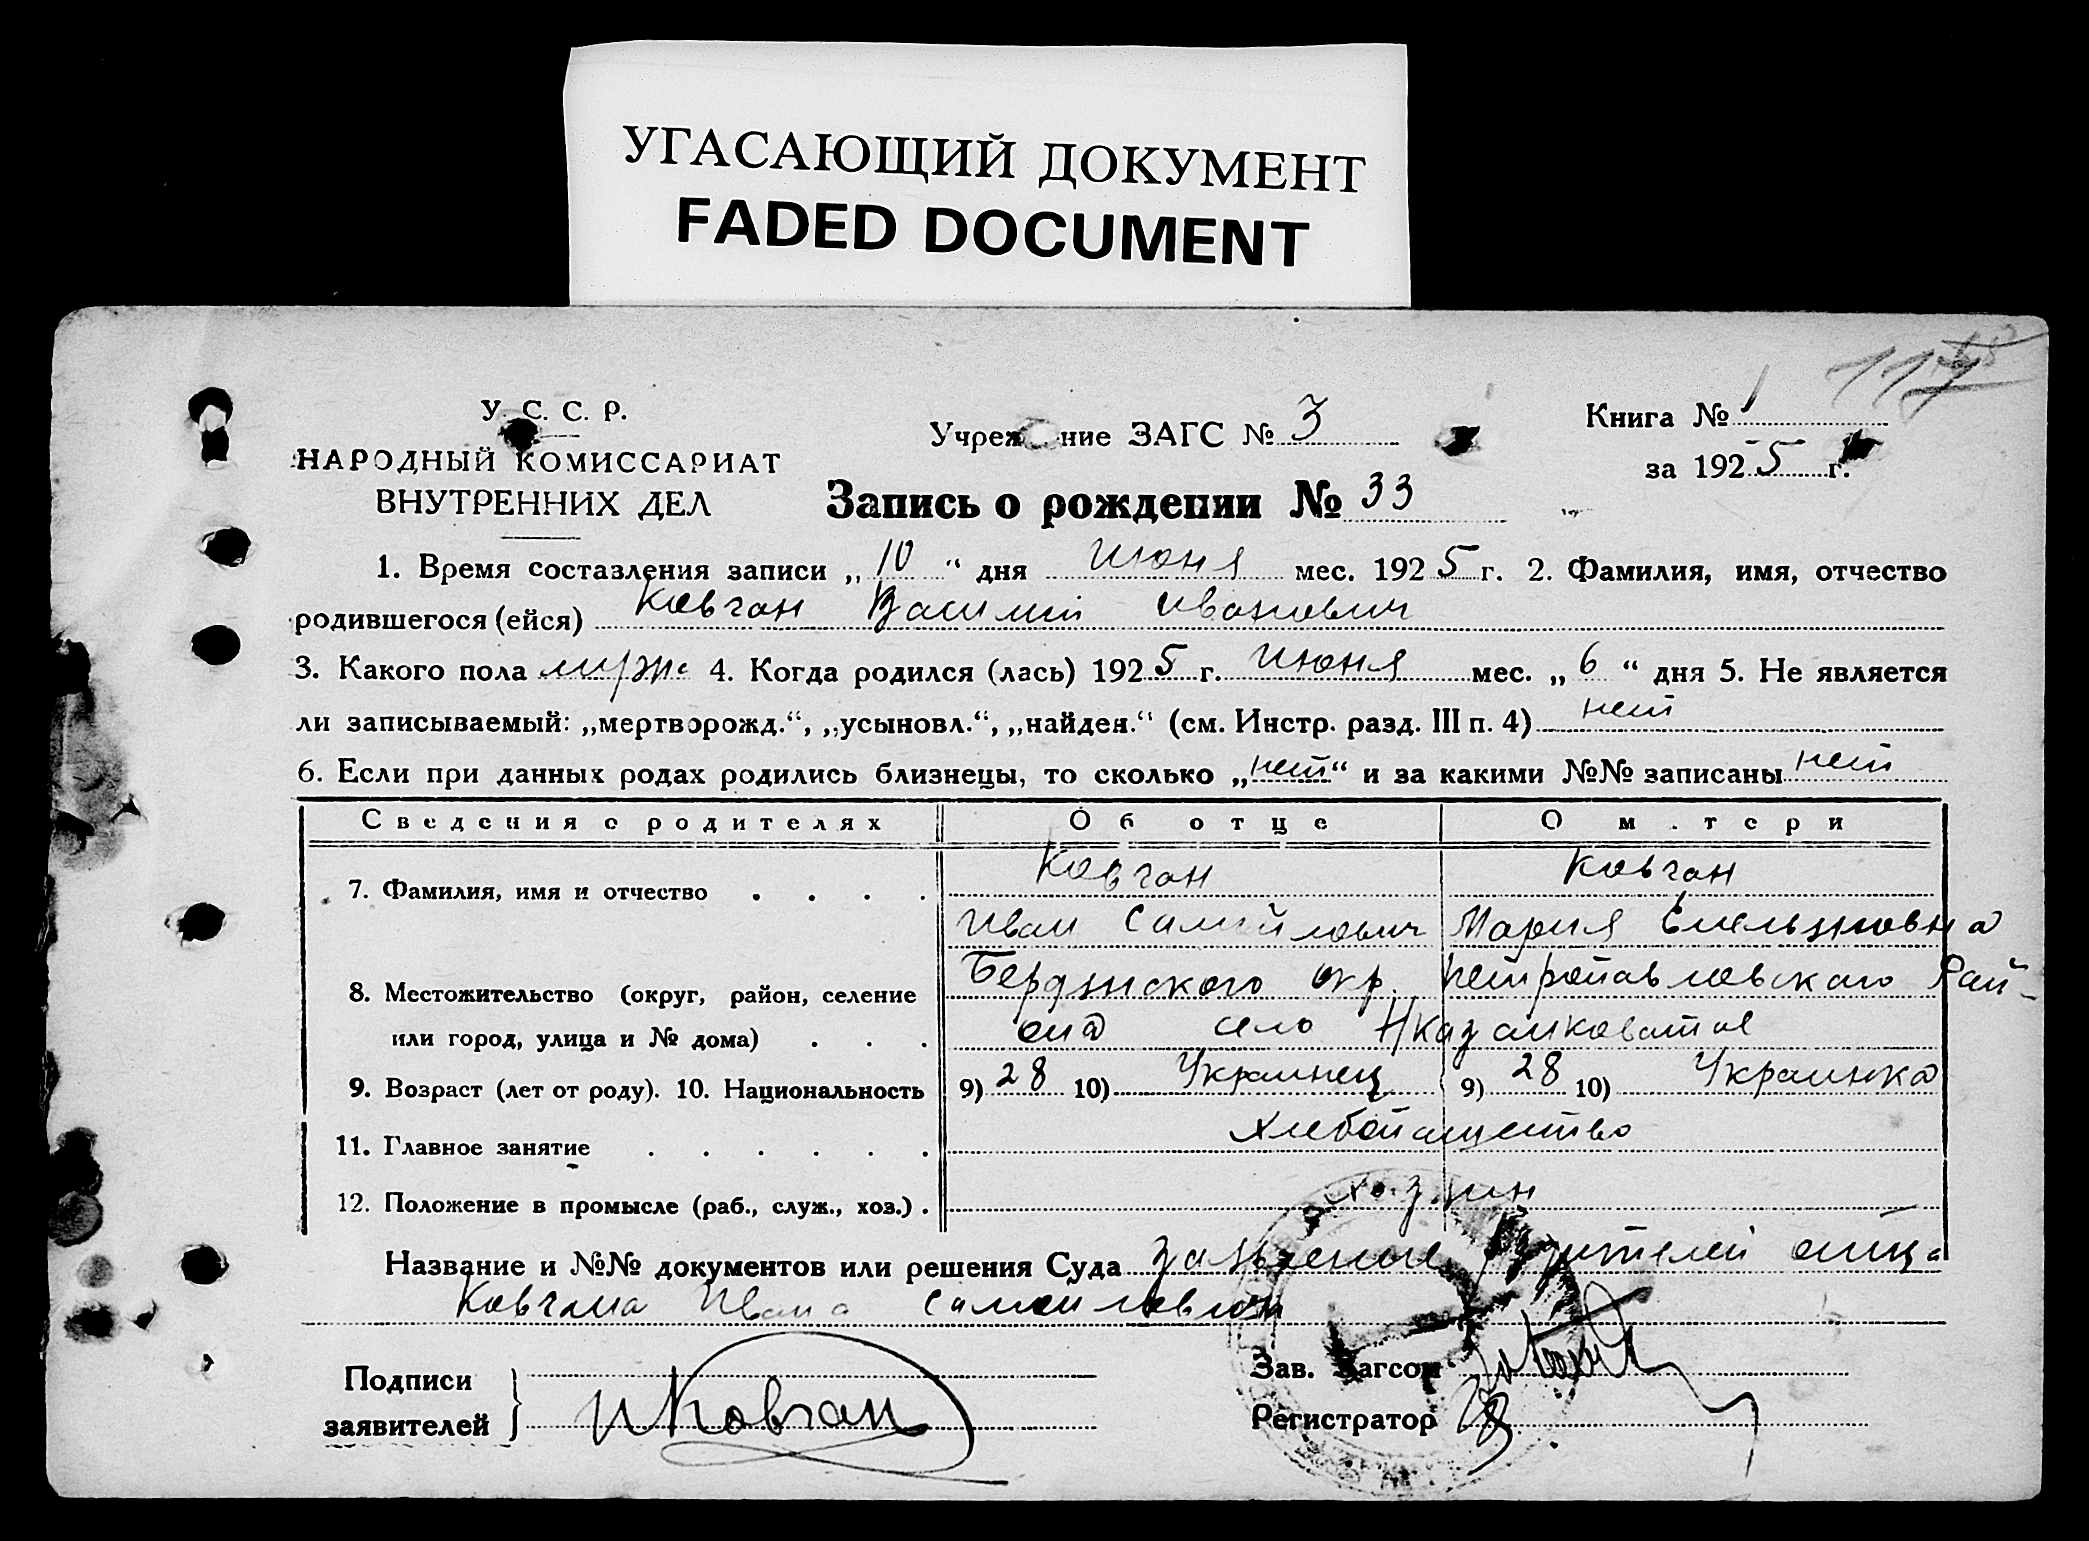 УГАСАЮЩИЙ ДОКУМЕНТ
FADED DOCUMENT
117
У. С. С. Р.
НАРОДНЫЙ КОМИССАРИАТ
ВНУТРЕННИХ ДЕЛ
Учреж ние ЗАГС № 3
Книга № 1
за 1925 г.
Запись о рождении № 33
1. Время составления записи „ 10 “ дня Июня мес. 1925 г. 2. Фамилия, имя, отчество
родившегося (ейся) Ковган Василий Иванович
3. Какого пола муж. 4. Когда родился (лась) 1925 г. Июня мес. „ 6 “ дня 5. Не является
ли записываемый: „мертворожд.“, „усыновл.“, „найден.“ (см. Инстр. разд. III п. 4) нет
6. Если при данных родах родились близнецы, то сколько „нет“ и за какими №№ записаны нет
Сведения о родителях Об отце О м.тери
7. Фамилия, имя и отчество . . . . Ковган Ковган
Иван Самийлович Мария Емельяновна
8. Местожительство (округ, район, селение Бердянского окр. Петропавловского Рай-
или город, улица и № дома) . . . она село
9. Возраст (лет от роду). 10. Национальность 9) 28 10) Украинец 9) 28 10) Украинка
11. Главное занятие . . . . . . Хлебопашество
12. Положение в промысле (раб., служ., хоз.) . хозяин
Название и №№ документов или решения Суда заявление родителей отца
Ковгана Ивана Самойловича
Подписи
заявителей И Ковган
Зав. Загсом
Регистратор